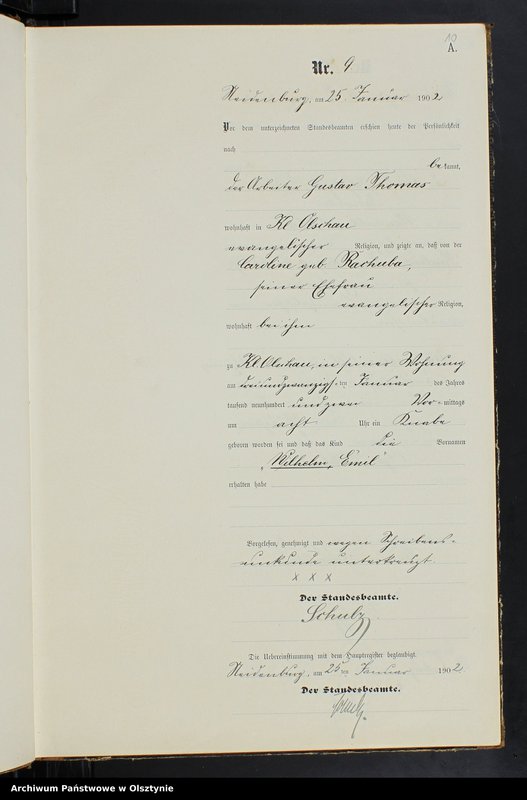 10
A.
Nr. 9
Neidenburg, am 25. Januar 1902
Vor dem unterzeichneten Standesbeamten erschien heute der Persönlichkeit
nach
be kannt,
der Arbeiter Gustav Thomas
wohnhaft in Kl Olschau
evangelischer Religion, und zeigte an, daß von der
Caroline geb. Rachuba,
seiner Ehefrau
evangelischer Religion,
wohnhaft bei ihm
zu Kl. Olschau, in seiner Wohnung
am dreiundzwanzigsten Januar des Jahres
tausend neunhundert und zwei Vor-mittags
um acht Uhr ein Knabe
geboren worden sei und daß das Kind die Vornamen
„Wilhelm, Emil"
erhalten habe
Vorgelesen, genehmigt und wegen Schreibens-
unkunde unterkreuzt.
x x x
Der Standesbeamte.
Schulz
Die Uebereinstimmung mit dem Hauptregister beglaubigt.
Neidenburg, am 25ten Januar 1902
Der Standesbeamte.
Schulz.
Archiwum Państwowe w Olsztynie